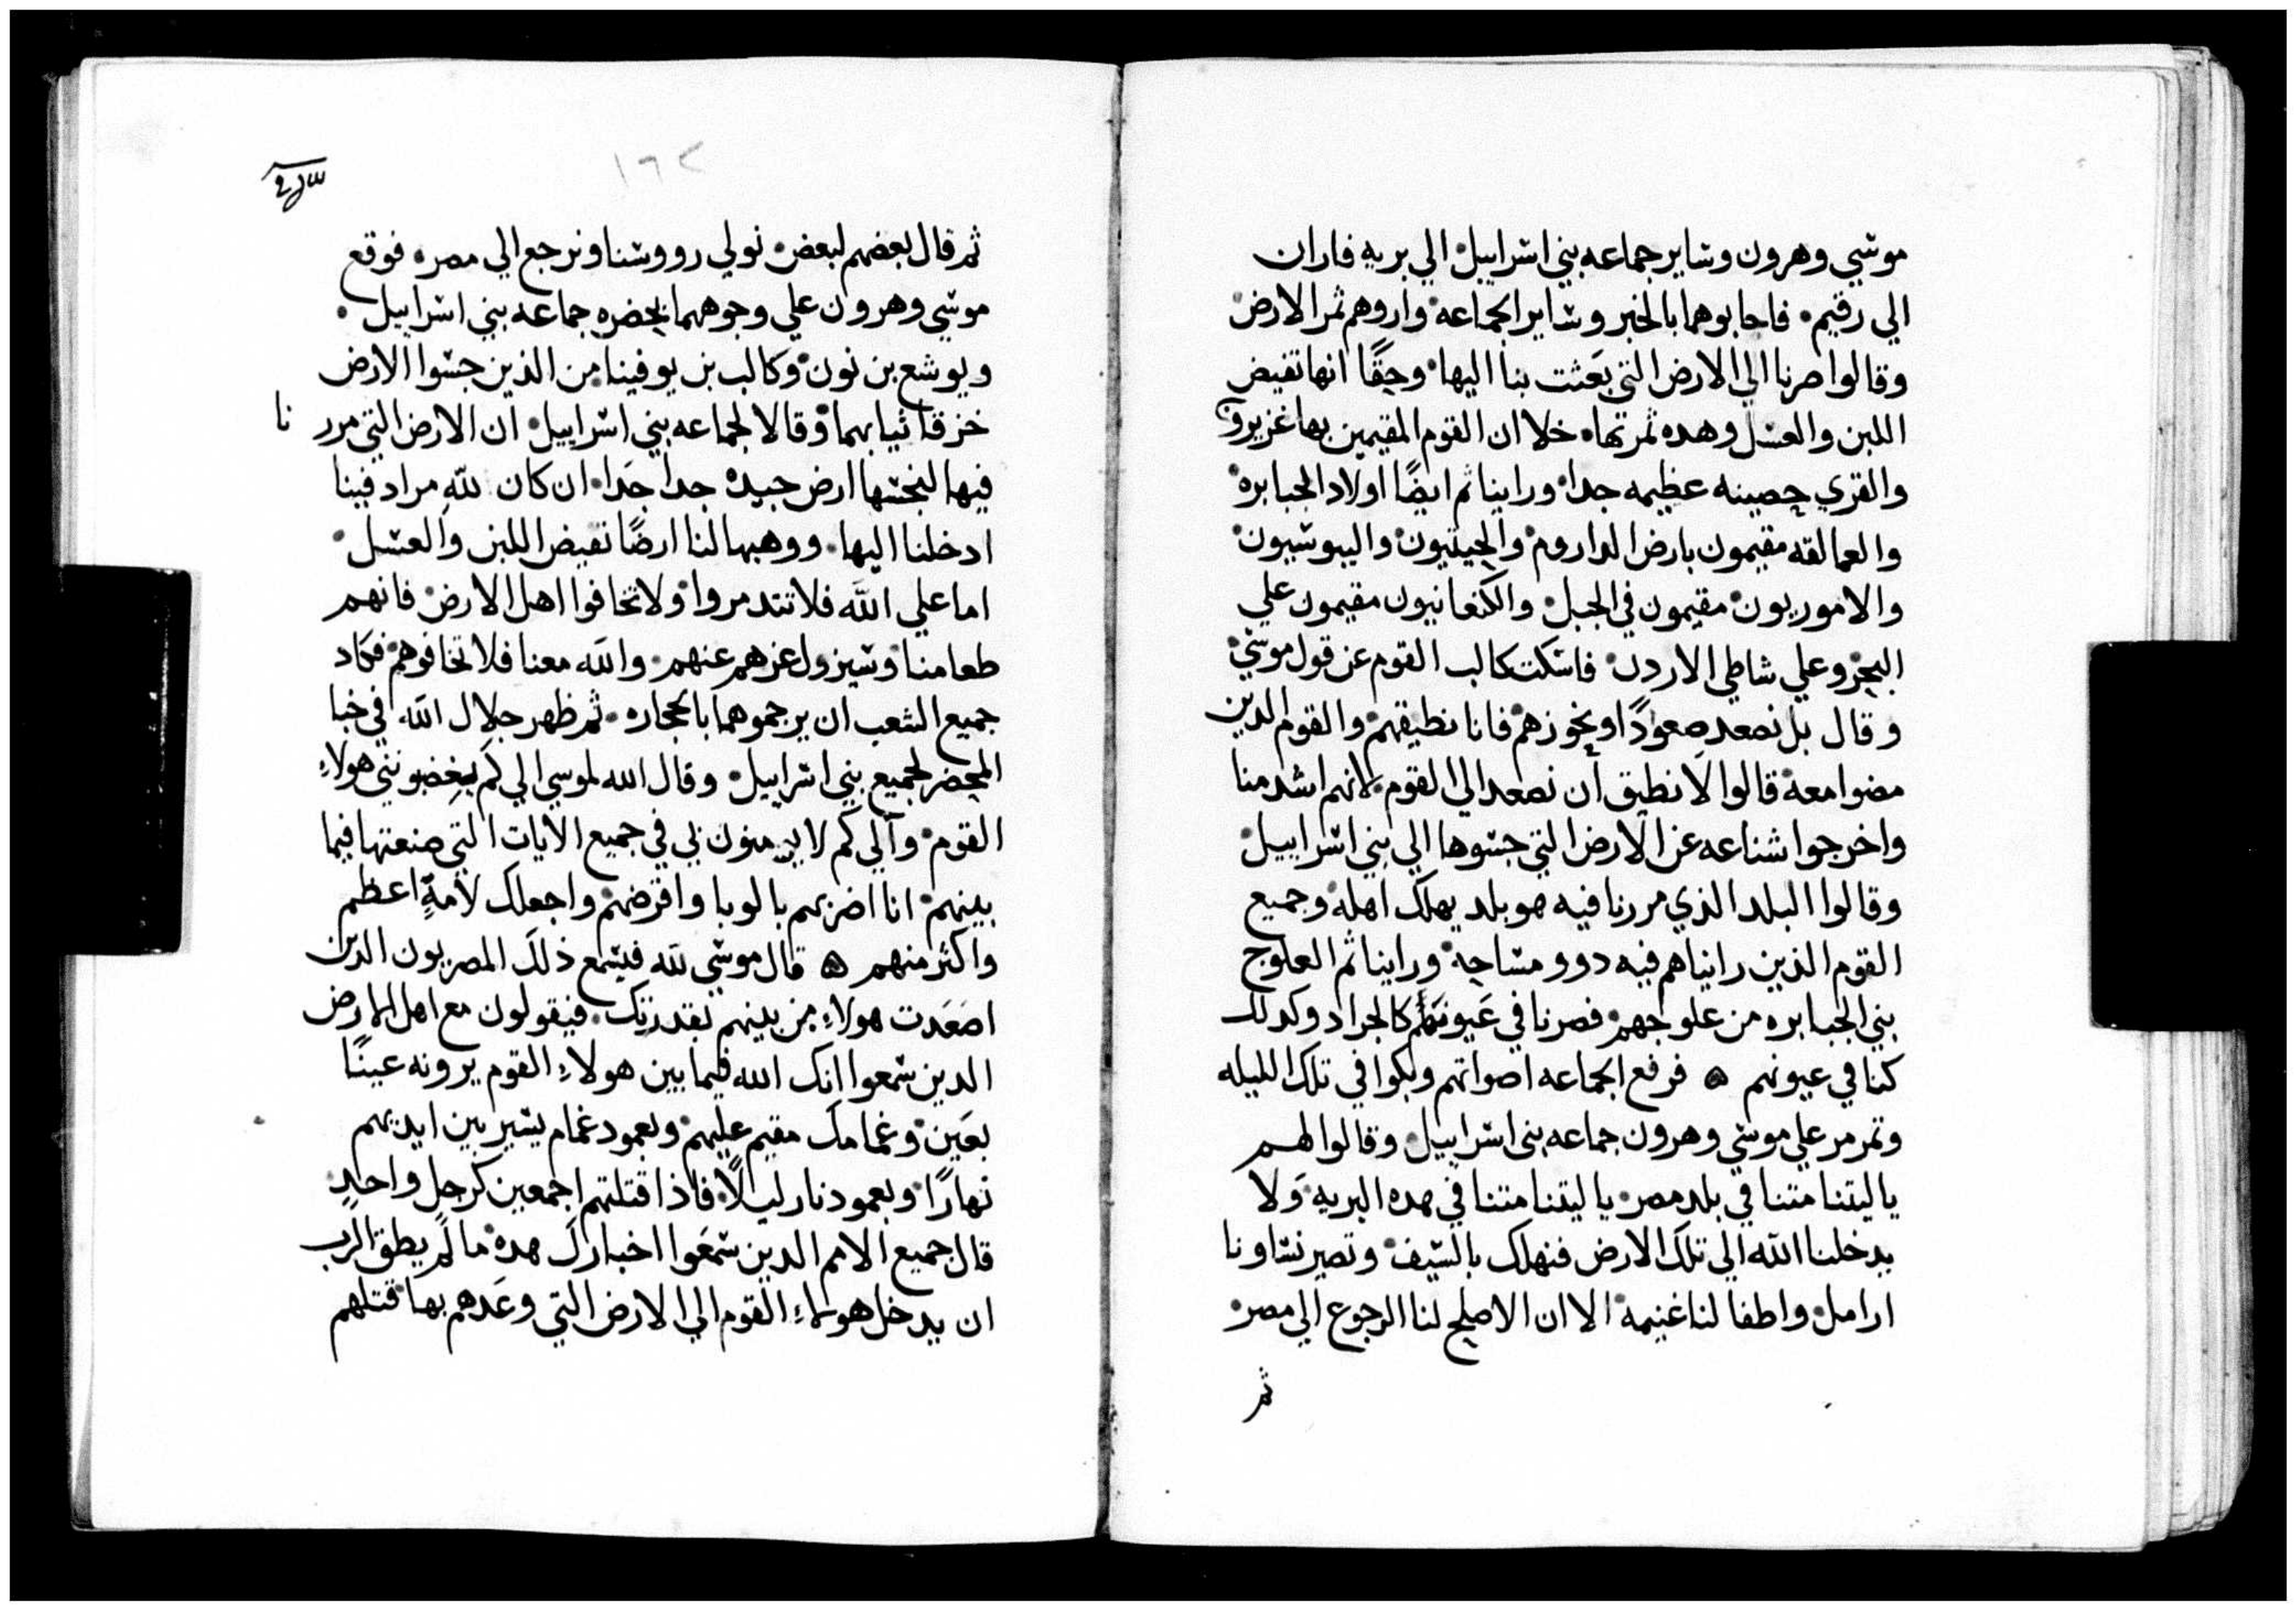 موسي وهرون وساير جماعه بني اسراييل الي بريه فاران
الي رقيم٠ فاجابوهما بالخبر وساير الجماعه٠ واروهم ثمر الارض
وقالوا صرنا الي الارض التي بَعثت بنا اليها٠ وحقًا انها تفيض
اللبن والعسل وهده ثمرتها٠ خلا ان القوم المقيمين بها غزيرون
والقري حصينه عظيمه جدا٠ وراينا ثم ايضًا اولاد الجبابره٠
والعمالقه مقيمون بارض الداروم٠ والحيثيون٠ واليبوسيون٠
والاموريون٠ مقيمون في الجبل٠ والكنعانيون مقيمون علي
البحر وعلي شاطي الاردن٠ فاسكت كالب القوم عن قول موسي٠
وقال بل نصعد صعودًا ونحوزهم٠ فانا نطيقهم٠ والقوم الدين
مضوا معه٠ قالوا لا نطيق ان نصعد الي القوم٠ لانهم اشد منا
واخرجوا شناعه عن الارض التي جسوها الي بني اسراييل٠
وقالوا البلد الذي مررنا فيه هو بلد يهلك اهله٠ وجميع
القوم الذين رايناهم فيه دوو مساحه٠ وراينا ثم العلوج
بني الجبابره من علوجهم٠ فصرنا في عيونهم كالجراد وكدلك
كنا في عيونهم ه فرفع الجماعه اصواتهم وبكوا في تلك الليله
وتمرمر علي موسي وهرون جماعه بني اسراييل٠ وقالوا لهم
ياليتنا متنا في بلد مصر٠ ياليتنا متنا في هده البريه٠ وَلا
يدخلنا الله الي تلك الارض فنهلك بالسيف٠ وتصير نساونا
ارامل٠ واطفالنا غنيمه٠ الا ان الاصلح لنا الرجوع الي مصر٠
ثم
١٦٢
ثم قال بعضهم لبعض٠ نولي رووسنا ونرجع الي مصر٠ فوقع
موسي وهرون علي وجوههما بحضره جماعه بني اسراييل٠
ويوشع بن نون٠ وكالب بن يوفينا٠ من الذين جسوا الارض
خزقا ثيابهما٠ وقالا لجماعه بني اسراييل٠ ان الارض التي مرر نا
فيها لنجسها ارض جيده جدا جَدا٠ ان كان لله مراد فينا
ادخلنا اليها٠ ووهبها لنا ارضًا تفيض اللبن والعسل٠
اما علي الله فلا تتدمروا٠ ولا تخافوا اهل الارض٠ فانهم
طعامنا٠ وسيزول عزهم عنهم٠ والله معنا فلا تخافوهم٠ فكاد
جميع الشعب ان يرجموهما بالحجاره٠ ثم ظهر جلال الله في خبا
المحضر لجميع بني اسراييل٠ وقال الله لموسي الي كم يغضبونني هولاءِ
القوم٠ والي كم لا يومنون بي في جميع الايات التي صنعتها فيما
بينهم٠ انا اضربهم بالوبا واقرضهم٠ واجعلك لامةٍ اعظم
واكثر منهم ه قال موسي لله فيسمع ذلك المصريون الدين
اصَعَدت هولاءِ من بينهم بقدرتك٠ فيقولون مع اهل الارض
الدين سمعوا انك الله فيما بين هولاءِ القوم يرونه عينًا
بعَين٠ وغمامك مقيم عليهم٠ وبعمود غمام يسير بين ايديهم
نهارًا٠ وبعمود نار ليلًا٠ فاذا قتلتهم اجمعين كرجل واحدٍ٠
قال جميع الامم الدين سمَعوا اخبارك هده٠ ما لم يطق الرب
ان يدخل هولاءِ القوم الي الارض التي وعَدهم بها٠ قتلهم